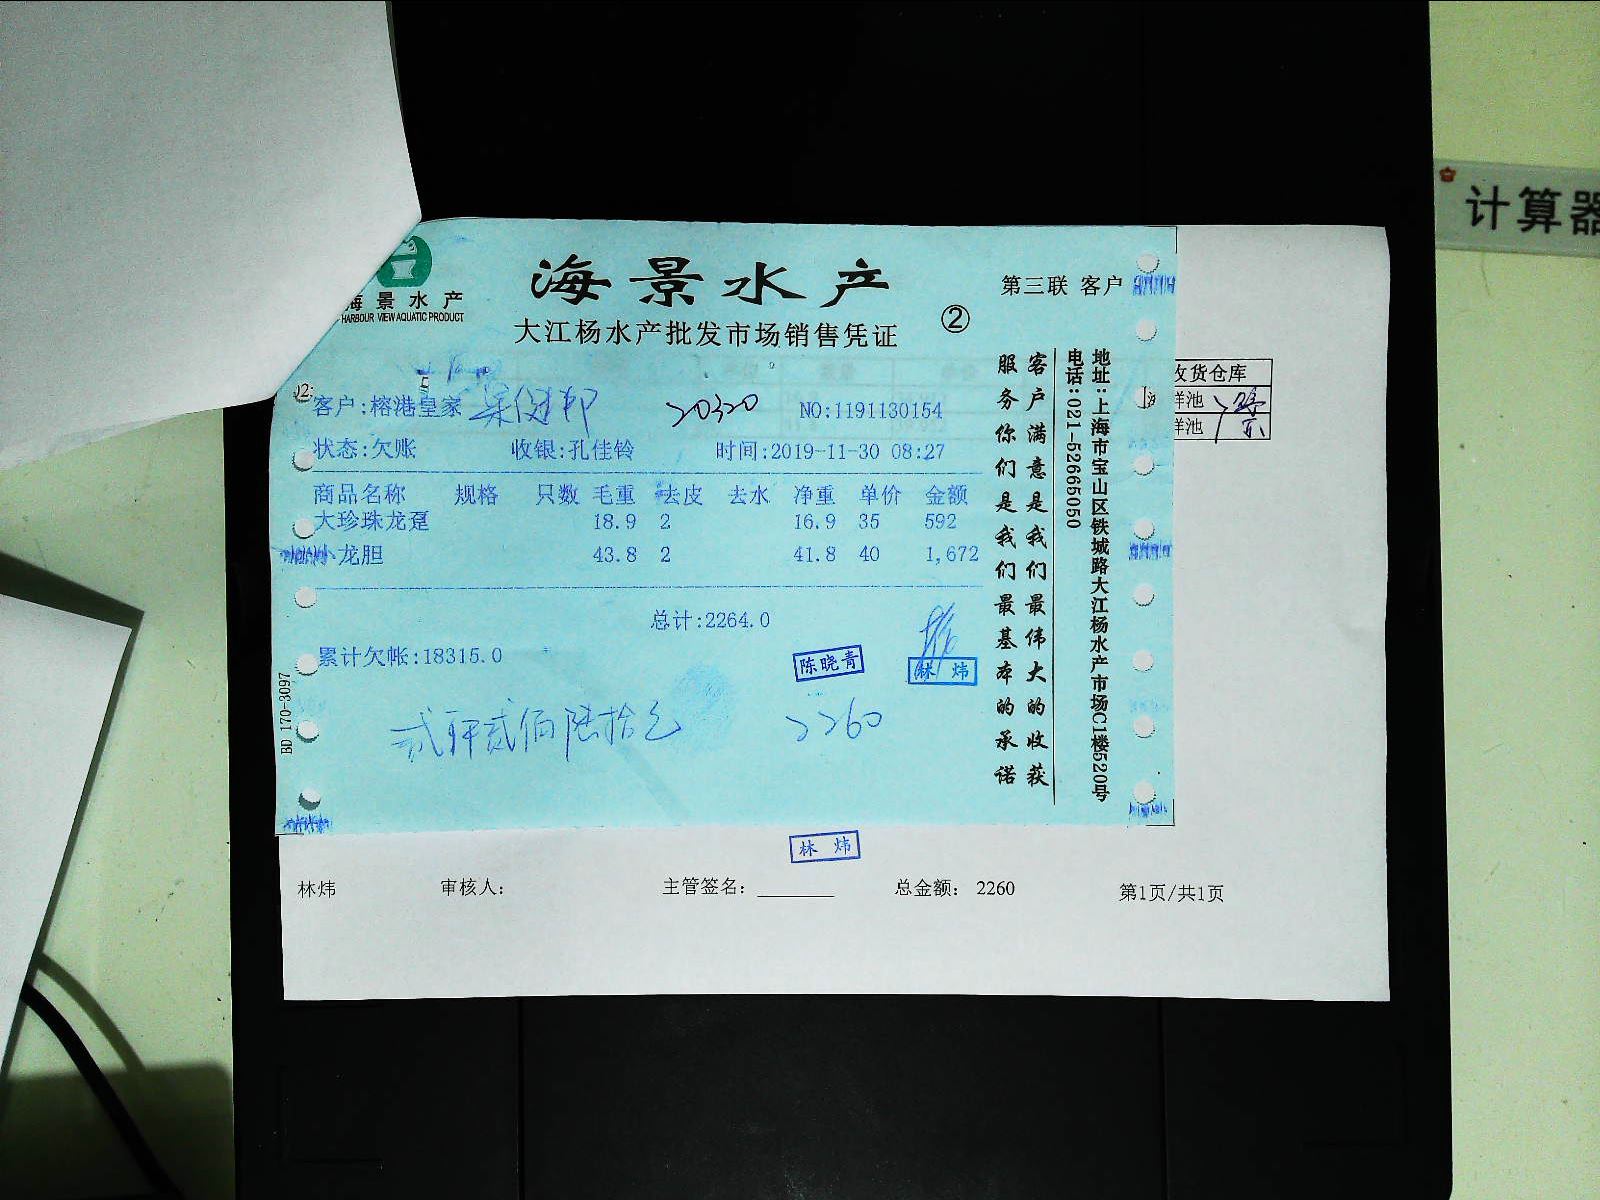 计算器
海景水产
HARBOUR VIEW AQUATIC PRODUCT
海景水产
大江杨水产批发市场销售凭证
②
第三联 客户
客户:榕港皇家
20320
NO:1191130154
状态:欠账 收银:孔佳铃 时间:2019-11-30 08:27
商品名称 规格 只数 毛重 去皮 去水 净重 单价 金额
大珍珠龙趸 18.9 2 16.9 35 592
小龙胆 43.8 2 41.8 40 1,672
总计:2264.0
累计欠帐:18315.0
陈晓青
林炜
贰仟贰佰陆拾元
2260
BD 170-3097
客户满意是我们最伟大的收获
服务你们是我们最基本的承诺
地址:上海市宝山区铁城路大江杨水产市场C1楼520号
电话:021-52665050
收货仓库
海鲜池
海鲜池
林炜
林炜 审核人: 主管签名: 总金额: 2260 第1页/共1页